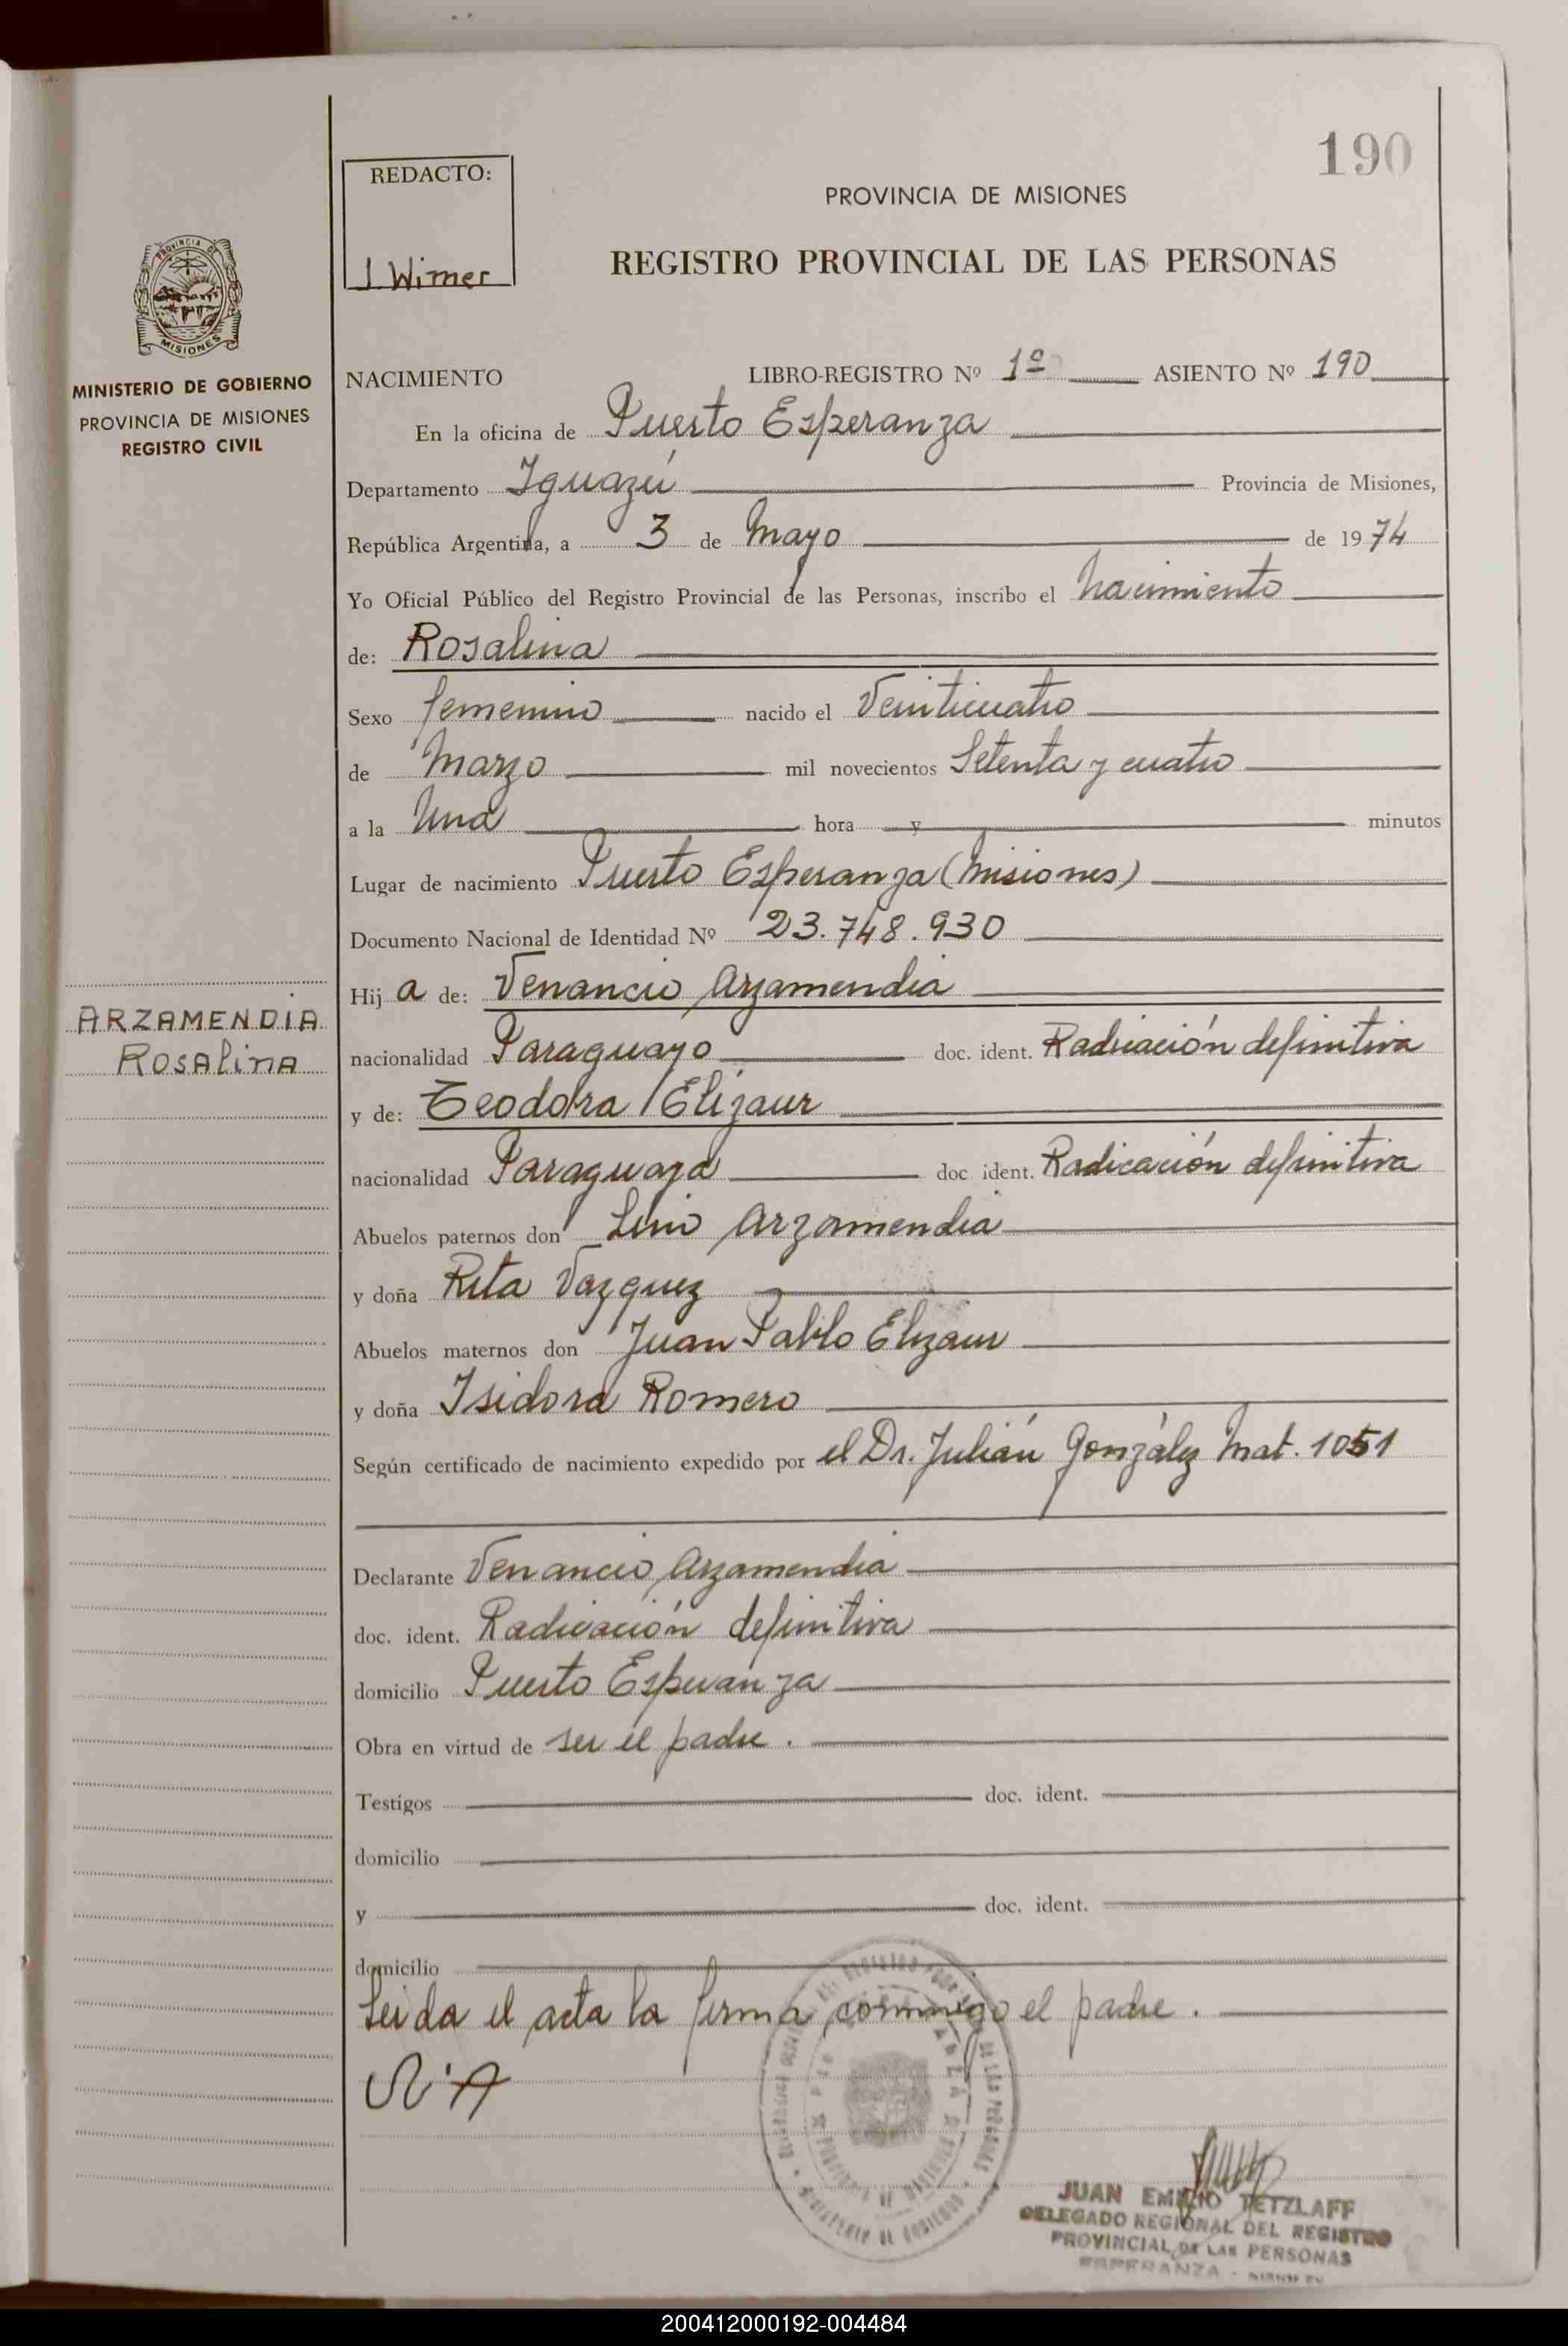 190
REDACTO:
J Wimer
PROVINCIA DE MISIONES
REGISTRO PROVINCIAL DE LAS PERSONAS
PROVINCIA DE
MISIONES
MINISTERIO DE GOBIERNO
PROVINCIA DE MISIONES
REGISTRO CIVIL
NACIMIENTO LIBRO-REGISTRO Nº 1º ASIENTO Nº 190
En la oficina de Puerto Esperanza
Departamento Iguazú Provincia de Misiones,
República Argentina, a 3 de Mayo de 1974
Yo Oficial Público del Registro Provincial de las Personas, inscribo el nacimiento
de: Rosalina
Sexo femenino nacido el Veinticuatro
de Marzo mil novecientos Setenta y cuatro
a la Una hora y minutos
Lugar de nacimiento Puerto Esperanza (Misiones)
Documento Nacional de Identidad Nº 23.748.930
Hija de: Venancio Arzamendia
ARZAMENDIA
Rosalina
nacionalidad Paraguayo doc. ident. Radicación definitiva
y de: Teodora Elizaur
nacionalidad Paraguaya doc ident. Radicación definitiva
Abuelos paternos don Lino Arzamendia
y doña Rita Vazquez
Abuelos maternos don Juan Pablo Elizaur
y doña Isidora Romero
Según certificado de nacimiento expedido por el Dr. Julián González Mat. 1051
Declarante Venancio Arzamendia
doc. ident. Radicación definitiva
domicilio Puerto Esperanza
Obra en virtud de ser el padre.
Testigos doc. ident.
domicilio
y doc. ident.
domicilio
Leida el acta la firma conmigo el padre.
JUAN EMILIO TETZLAFF
DELEGADO REGIONAL DEL REGISTRO
PROVINCIAL DE LAS PERSONAS
ESPERANZA - MISIONES
200412000192-004484